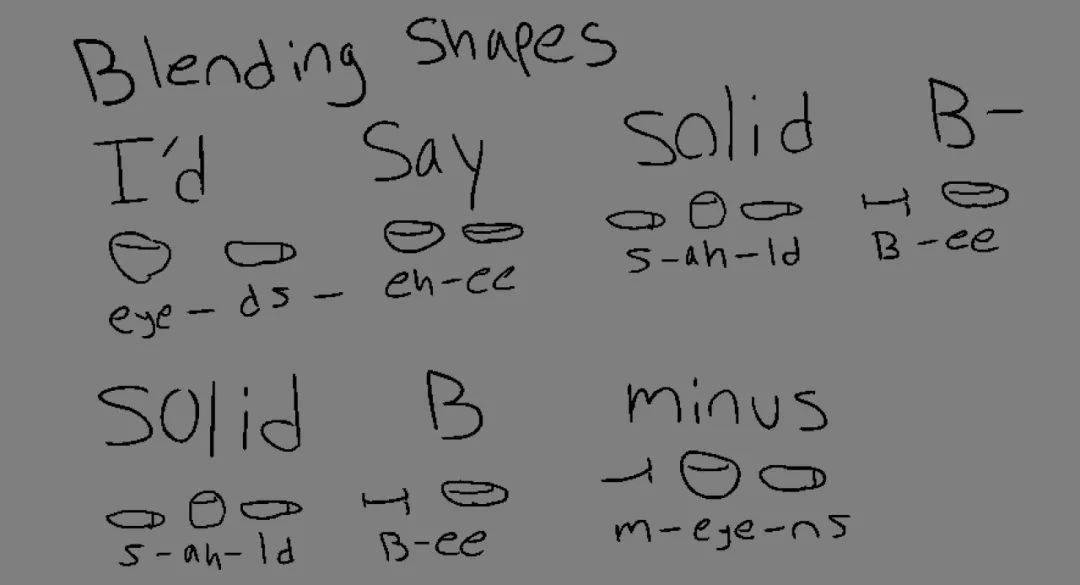 Blending Shapes
I'd Say Solid B-
eye - ds - eh-ee s-ah-ld B-ee
Solid B minus
s-ah-ld B-ee m-eye-ns